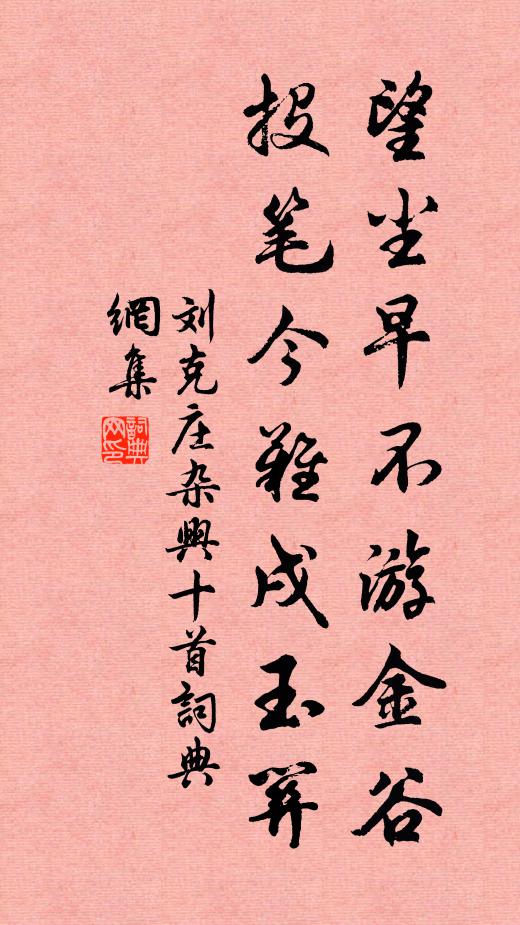 望尘早不游金谷
投笔今難戍玉关
刘克庄杂興十首詞典
網集
詞典
网印